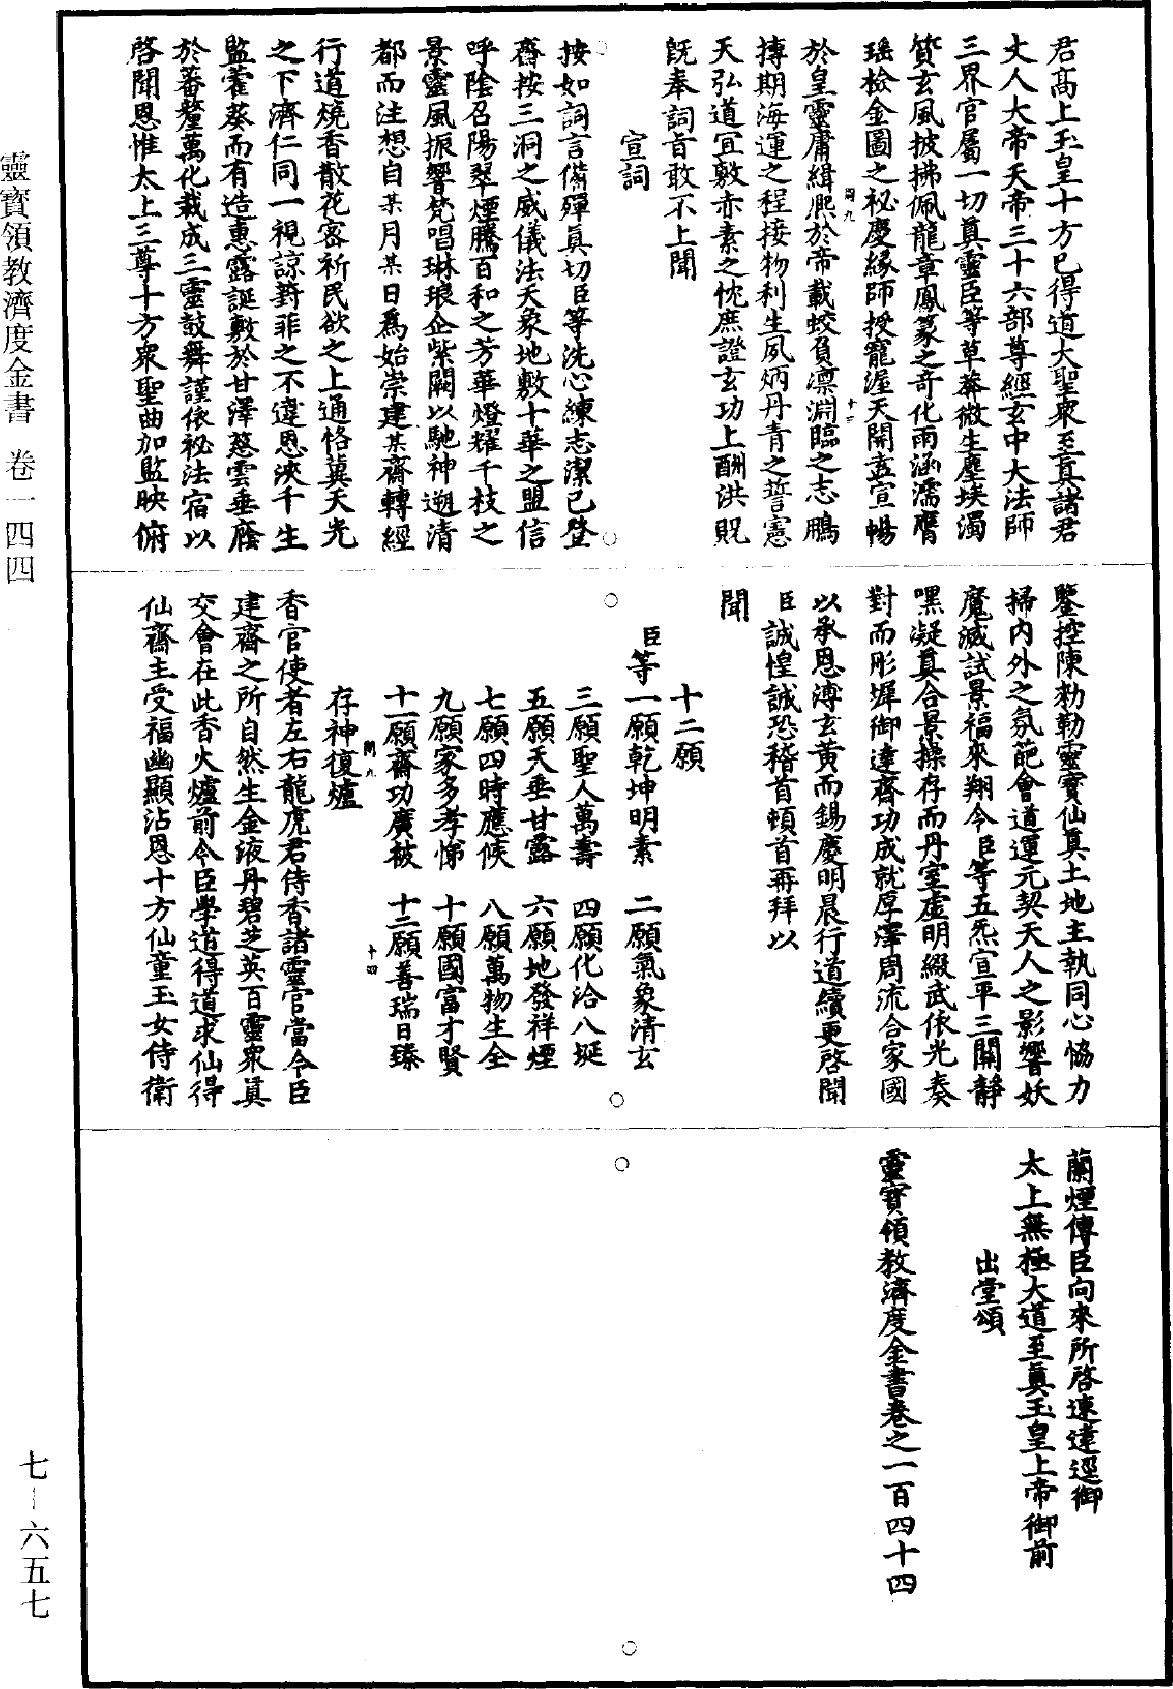 君高上玉皇十方已得道大聖眾至真諸君
丈人大帝天帝三十六部尊經玄中大法師
三界官屬一切真靈臣等草莽微生塵埃濁
質玄風披拂佩龍章鳳篆之奇化雨涵濡膺
瑶檢金圖之祕慶緣師授寵渥天開盍宣暢
於皇靈庸緝熙於帝載蛟負凛淵臨之志鵬
摶期海運之程接物利生夙炳丹青之誓憲
天弘道宜敷赤素之忱庶證玄功上酬洪貺
既奉詞旨敢不上聞
宣詞
按如詞言備殫真切臣等洗心練志潔己登
齋按三洞之威儀法天象地敷十華之盟信
呼陰召陽翠煙騰百和之芳華燈耀千枝之
景靈風振響梵唱琳琅企紫闕以馳神遡清
都而注想自某月某日為始崇建某齋轉經
行道燒香散花密祈民欲之上通恪冀天光
之下濟仁同一視諒葑菲之不遺恩浹千生
監藿葵而有造惠露誕敷於甘澤慈雲垂廕
於蕃釐萬化栽成三靈鼓舞謹依祕法宿以
啓聞恩惟太上三尊十方眾聖曲加監映俯
鑒控陳勑勒靈寶仙真土地主執同心恊力
掃内外之氛葩會道運元契天人之影響妖
魔滅試景福來翔今臣等五炁宣平三關靜
嘿凝真合景操存而丹室虛明綴武依光奏
對而彤墀御達齋功成就厚澤周流合家國
以承恩溥玄黄而錫慶明晨行道續更啓聞
臣誠惶誠恐稽首頓首再拜以
聞
十二願
臣等一願乾坤明素　二願氣象清玄
三願聖人萬壽　四願化洽八埏
五願天垂甘露　六願地發祥煙
七願四時應候　八願萬物生全
九願家多孝悌　十願國富才賢
十一願齋功廣被　十二願善瑞日臻
存神復爐
香官使者左右龍虎君侍香諸靈官當令臣
建齋之所自然生金液丹碧芝英百靈眾真
交會在此香火爐前令臣學道得道求仙得
仙齋主受福幽顯沾恩十方仙童玉女侍衛
蘭煙傳臣向來所啓速達逕御
太上無極大道至真玉皇上帝御前
出堂頌
靈寶領教濟度金書卷之一百四十四
靈寶領教濟度金書　卷一四四
七—六五七